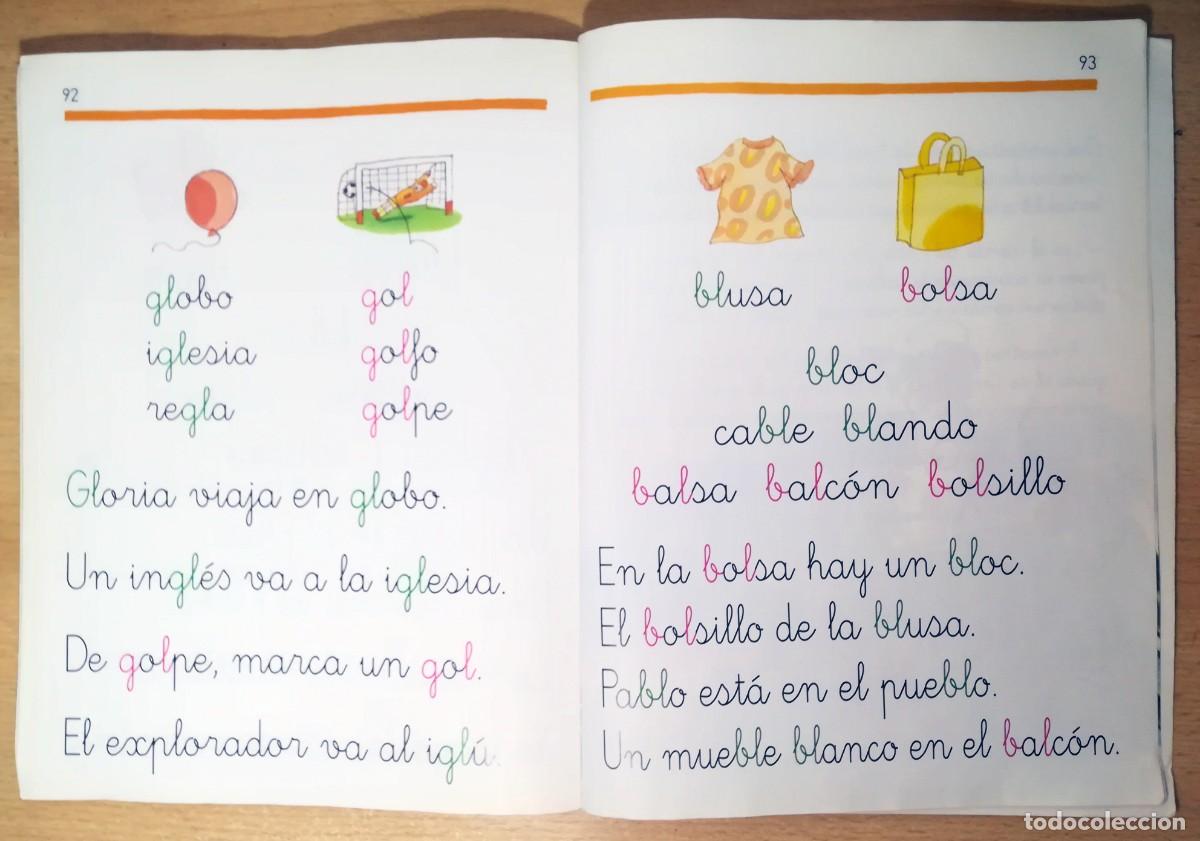 92
globo gol
iglesia golfo
regla golpe
Gloria viaja en globo.
Un inglés va a la iglesia.
De golpe, marca un gol.
El explorador va al iglú.
93
blusa bolsa
bloc
cable blando
balsa balcón bolsillo
En la bolsa hay un bloc.
El bolsillo de la blusa.
Pablo está en el pueblo.
Un mueble blanco en el balcón.
todocoleccion